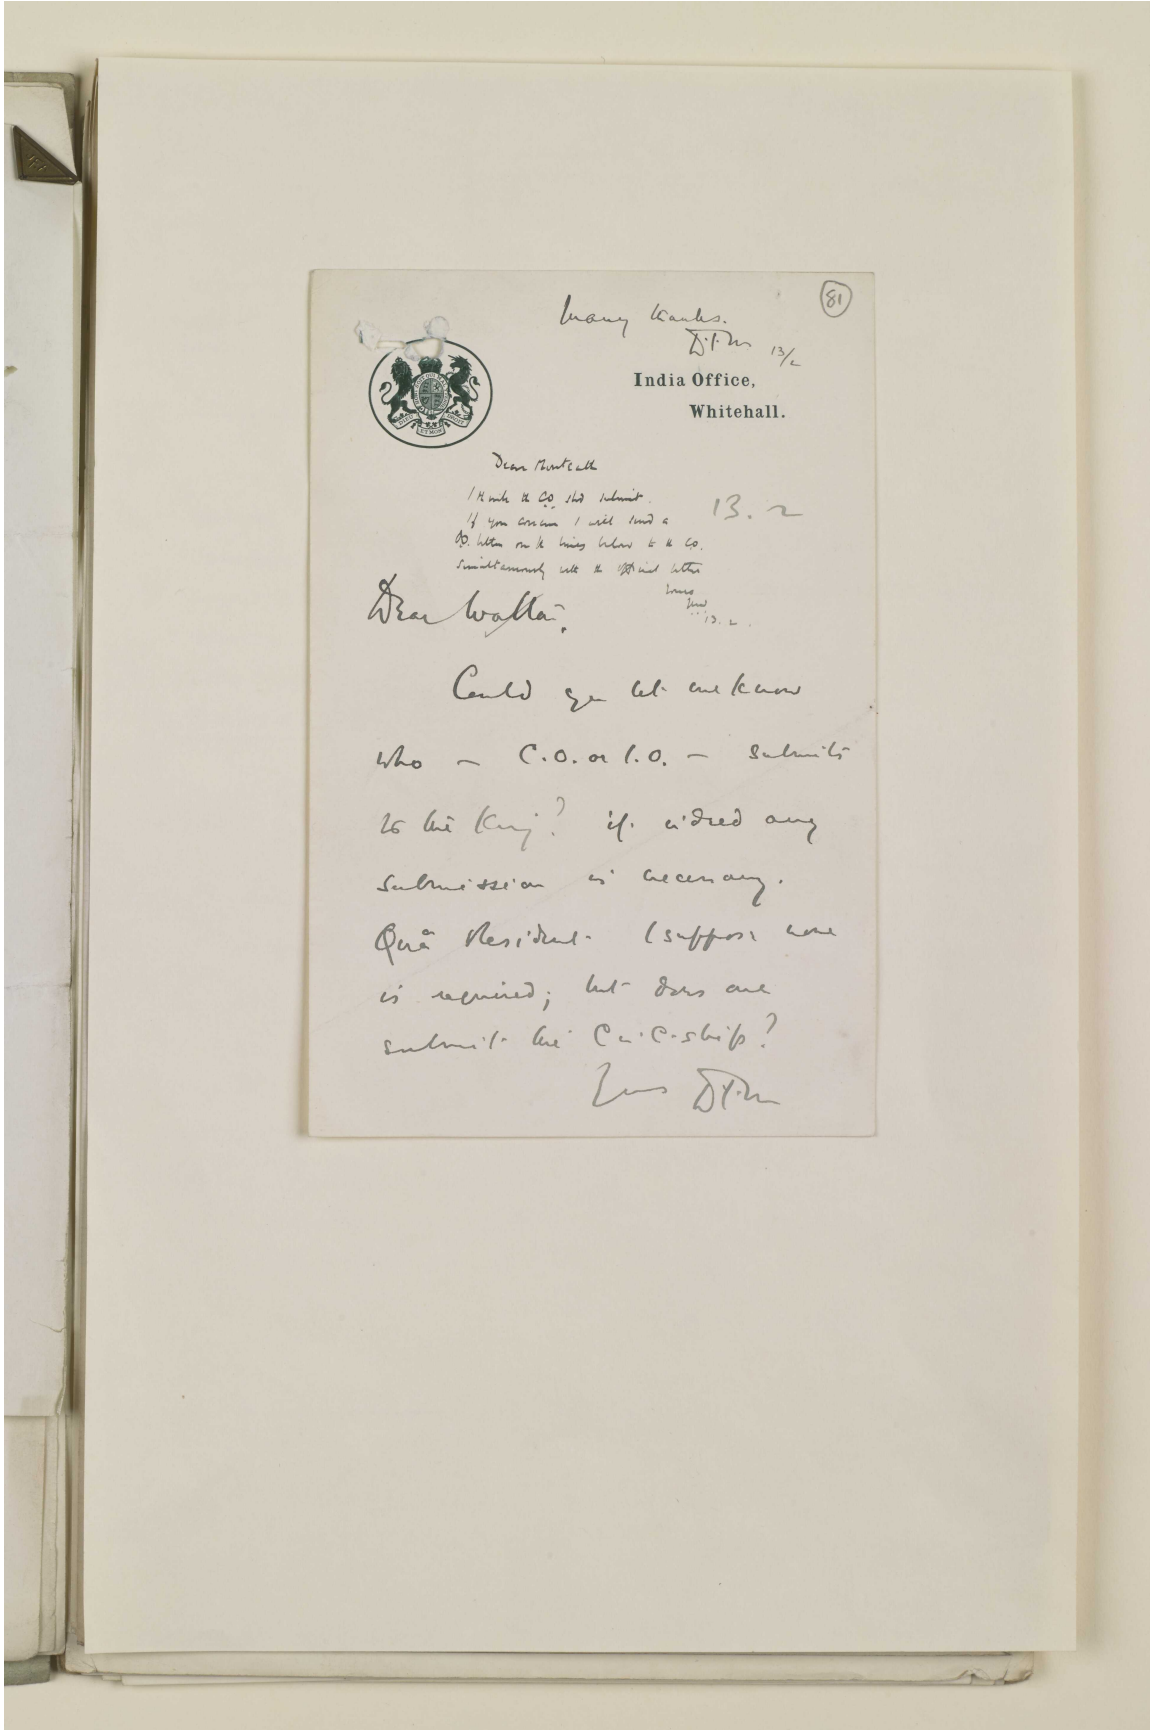 81
Many thanks.
D.T.M 13/2
India Office,
Whitehall.
DIEU ET MON DROIT
Dear Monteath
I think the C.O. shd submit.
If you concur I will send a
D.O. letter on the lines below to the C.O.
simultaneously with the official letter
Yours
13.2.
13.2
Dear Walton,
Could you let me know
who – C.O. or I.O. – submits
to the King? if indeed any
submission is necessary.
Quâ Resident I suppose none
is required; but does one
submit the C in C-ship?
Yours D.T.M